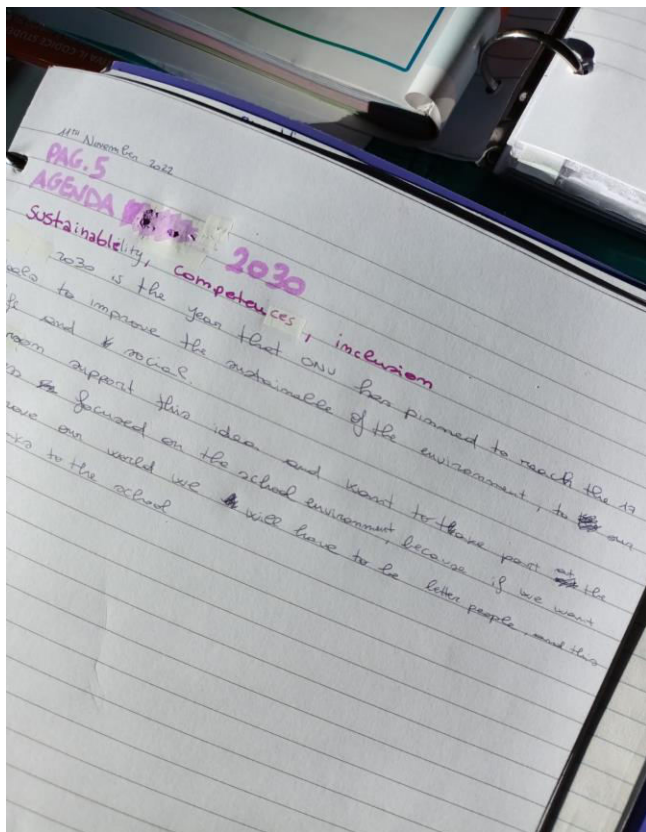 11TH November 2022
PAG. 5
AGENDA 2030
sustainablelity, competences, inclusion
2030 is the year that ONU has planned to reach the 17
to improve the sustainable of the environment, to our
and social.
support this idea and want to take part the
focused on the school environment, because if we want
our world we will have to be better people, and this
to the school